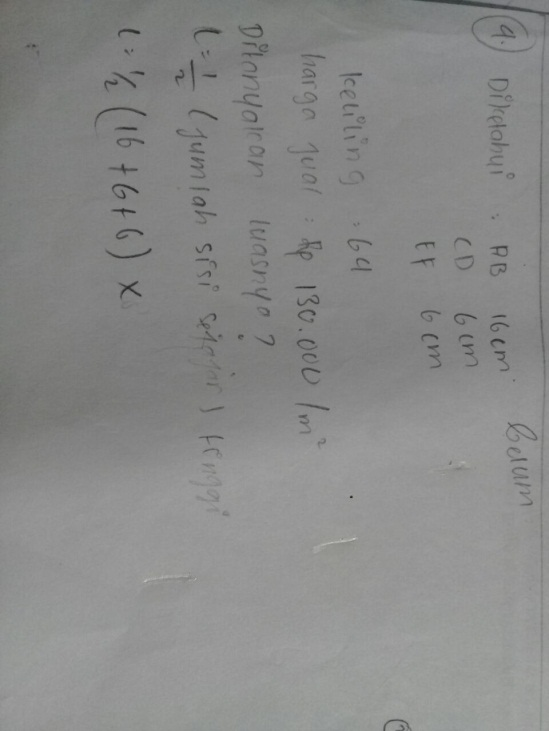 9. Diketahui : AB 16 cm
CD 6 cm
EF 6 cm
Belum
keliling : 64
harga jual : Rp 130.000 / m²
Ditanyakan luasnya ?
L = 1/2 ( jumlah sisi sejajar ) tinggi
L = 1/2 ( 16 + 6 + 6 ) x